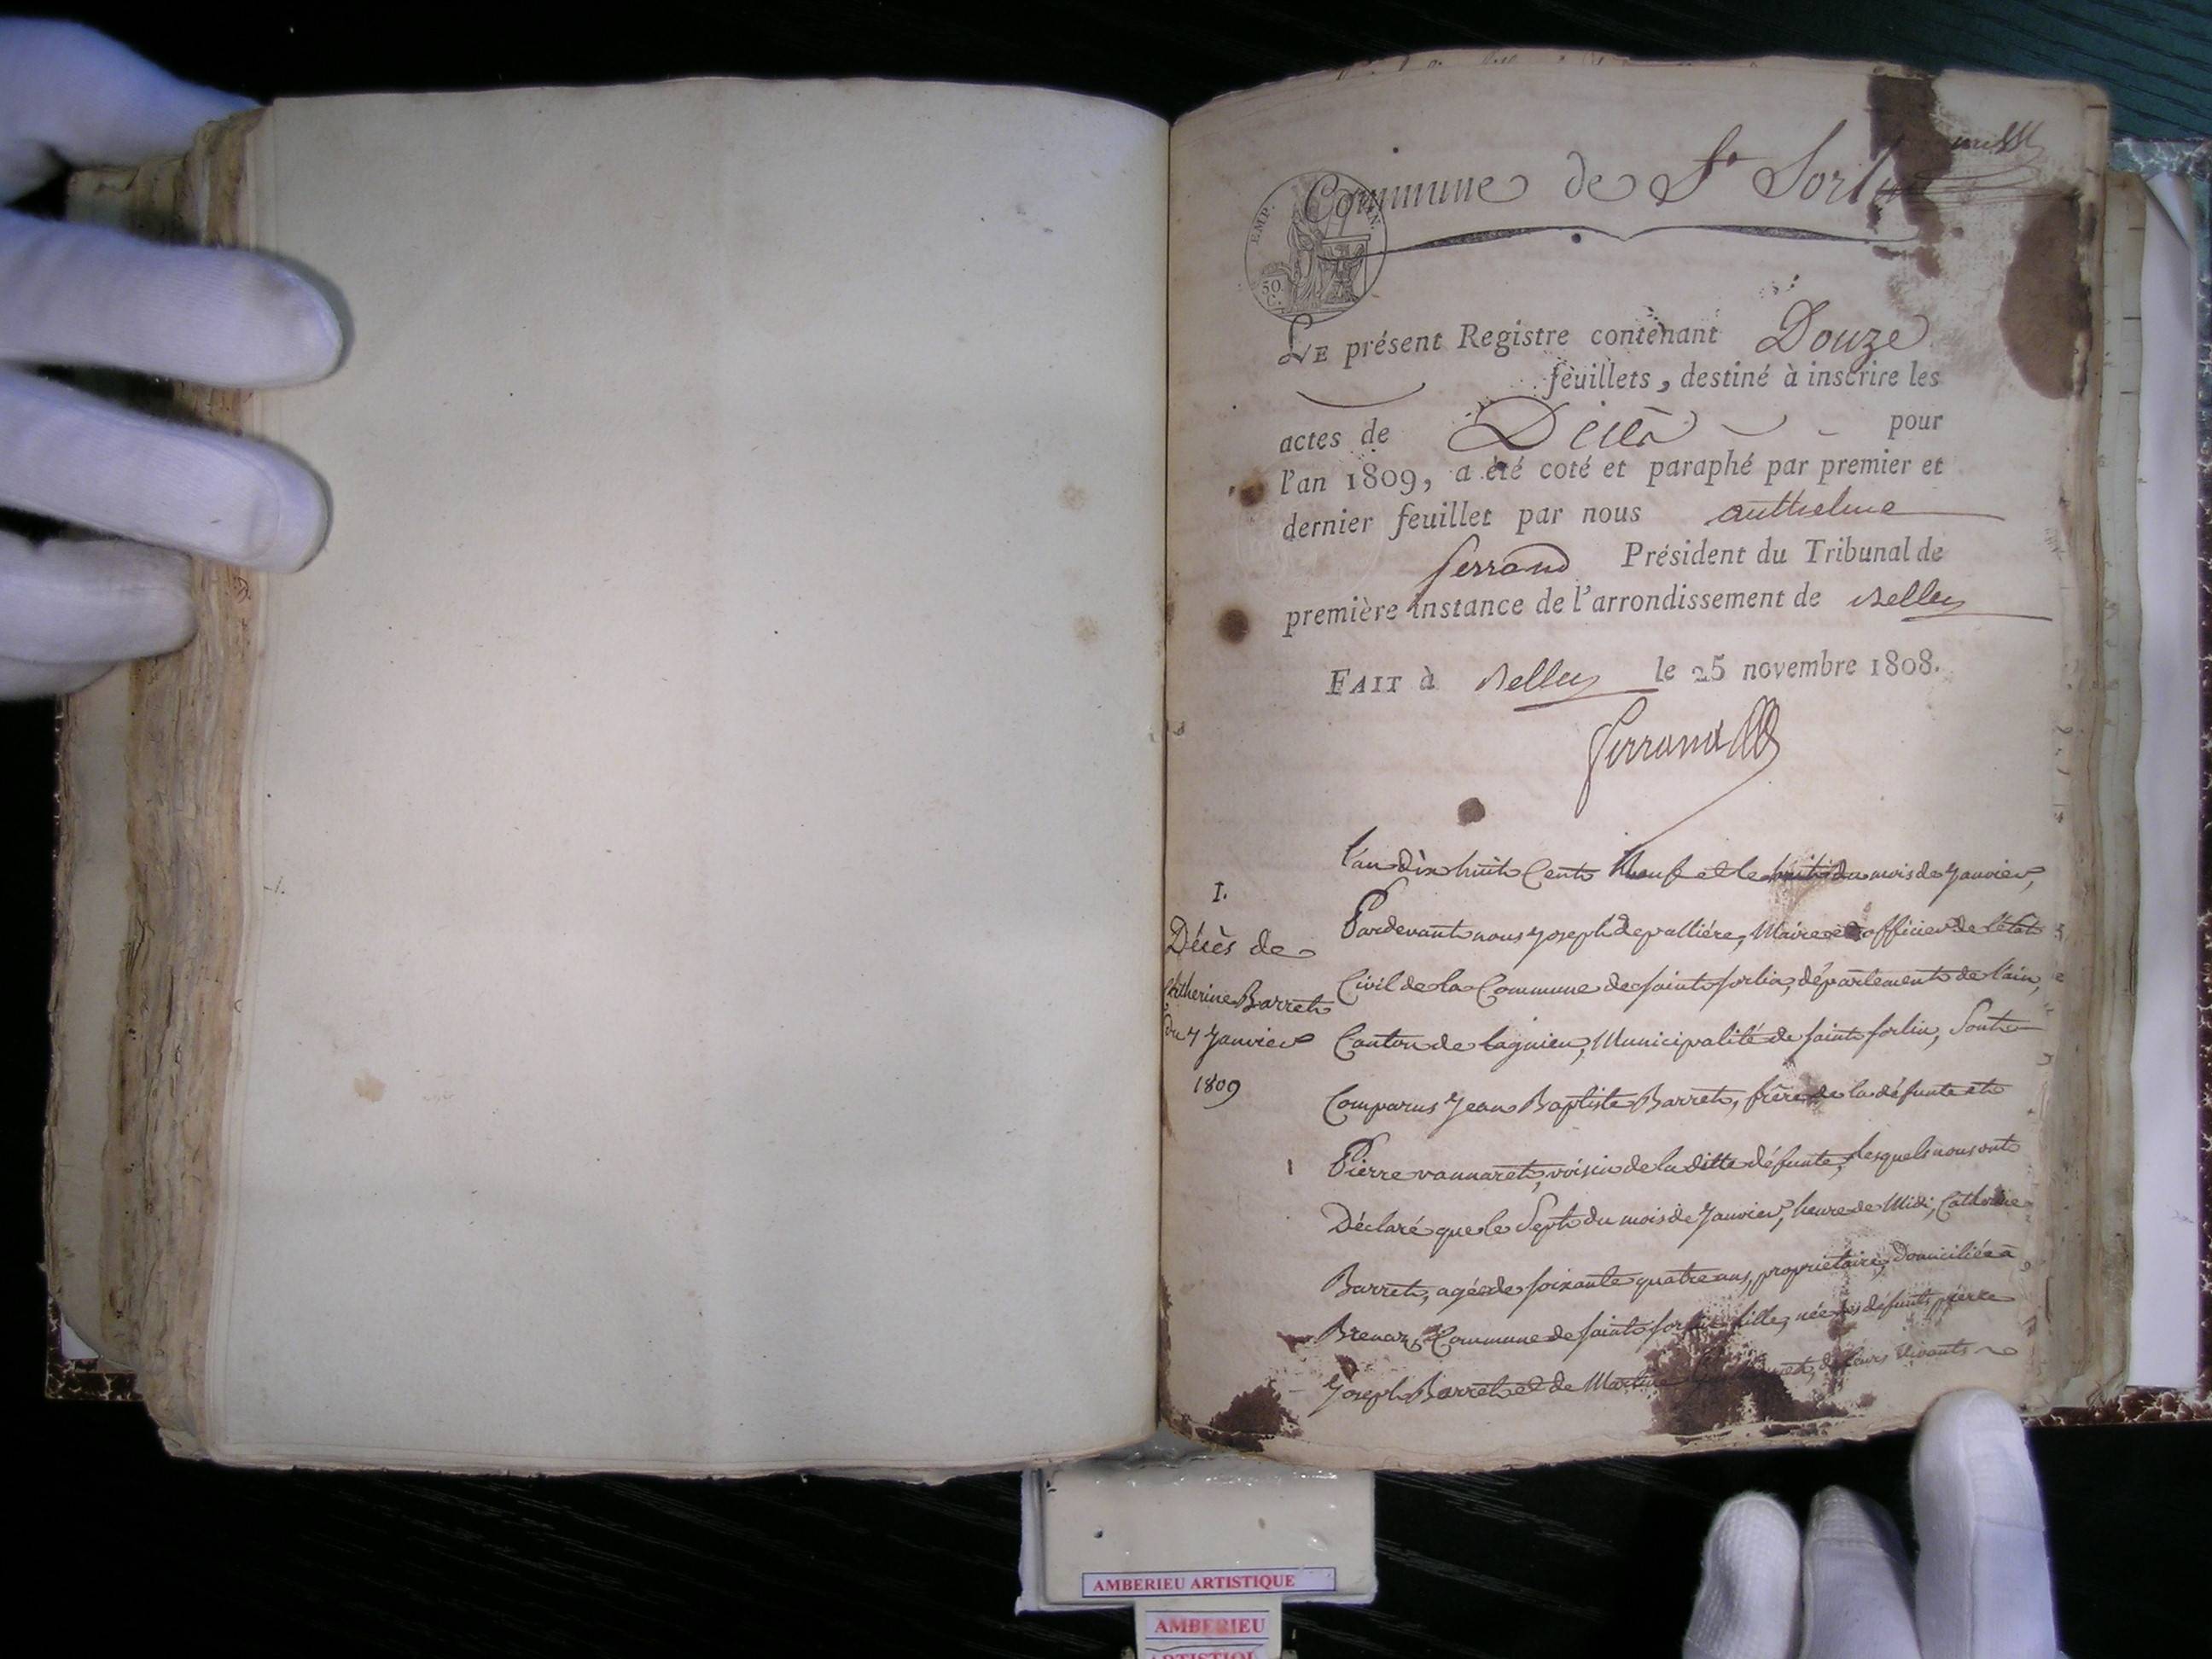 Commune de St Sorlin
EMP.
50
C.
LE présent Registre contenant Douze
feuillets, destiné à inscrire les
actes de Décès pour
l'an 1809, a été coté et paraphé par premier et
dernier feuillet par nous anthelme
ferrand Président du Tribunal de
première instance de l'arrondissement de Belley
FAIT à Belley le 25 novembre 1808.
ferrand
1.
Décès de
Catherine Barret
du 7 Janvier
1809
l'an dix huit Cent Neuf et le huit du mois de Janvier,
Pardevant nous Joseph depallière, Maire et officier de l'état
Civil de la Commune de saint sorlin, département de l'ain,
Canton de lagnieu, Municipalité de saint sorlin, Sont
Comparus Jean Baptiste Barret, frère de la défunte et
Pierre vannaret, voisin de la ditte défunte, lesquels nous ont
Déclaré que le Sept du mois de Janvier, heure de Midi, Catherine
Barret, agée de soixante quatre ans, propriétaire, Domiciliée à
Brenaz, Commune de saint sorlin fille, née des défunts pierre
Joseph Barret et de Martine de leurs vivants
AMBERIEU ARTISTIQUE
AMBERIEU
ARTISTIQUE